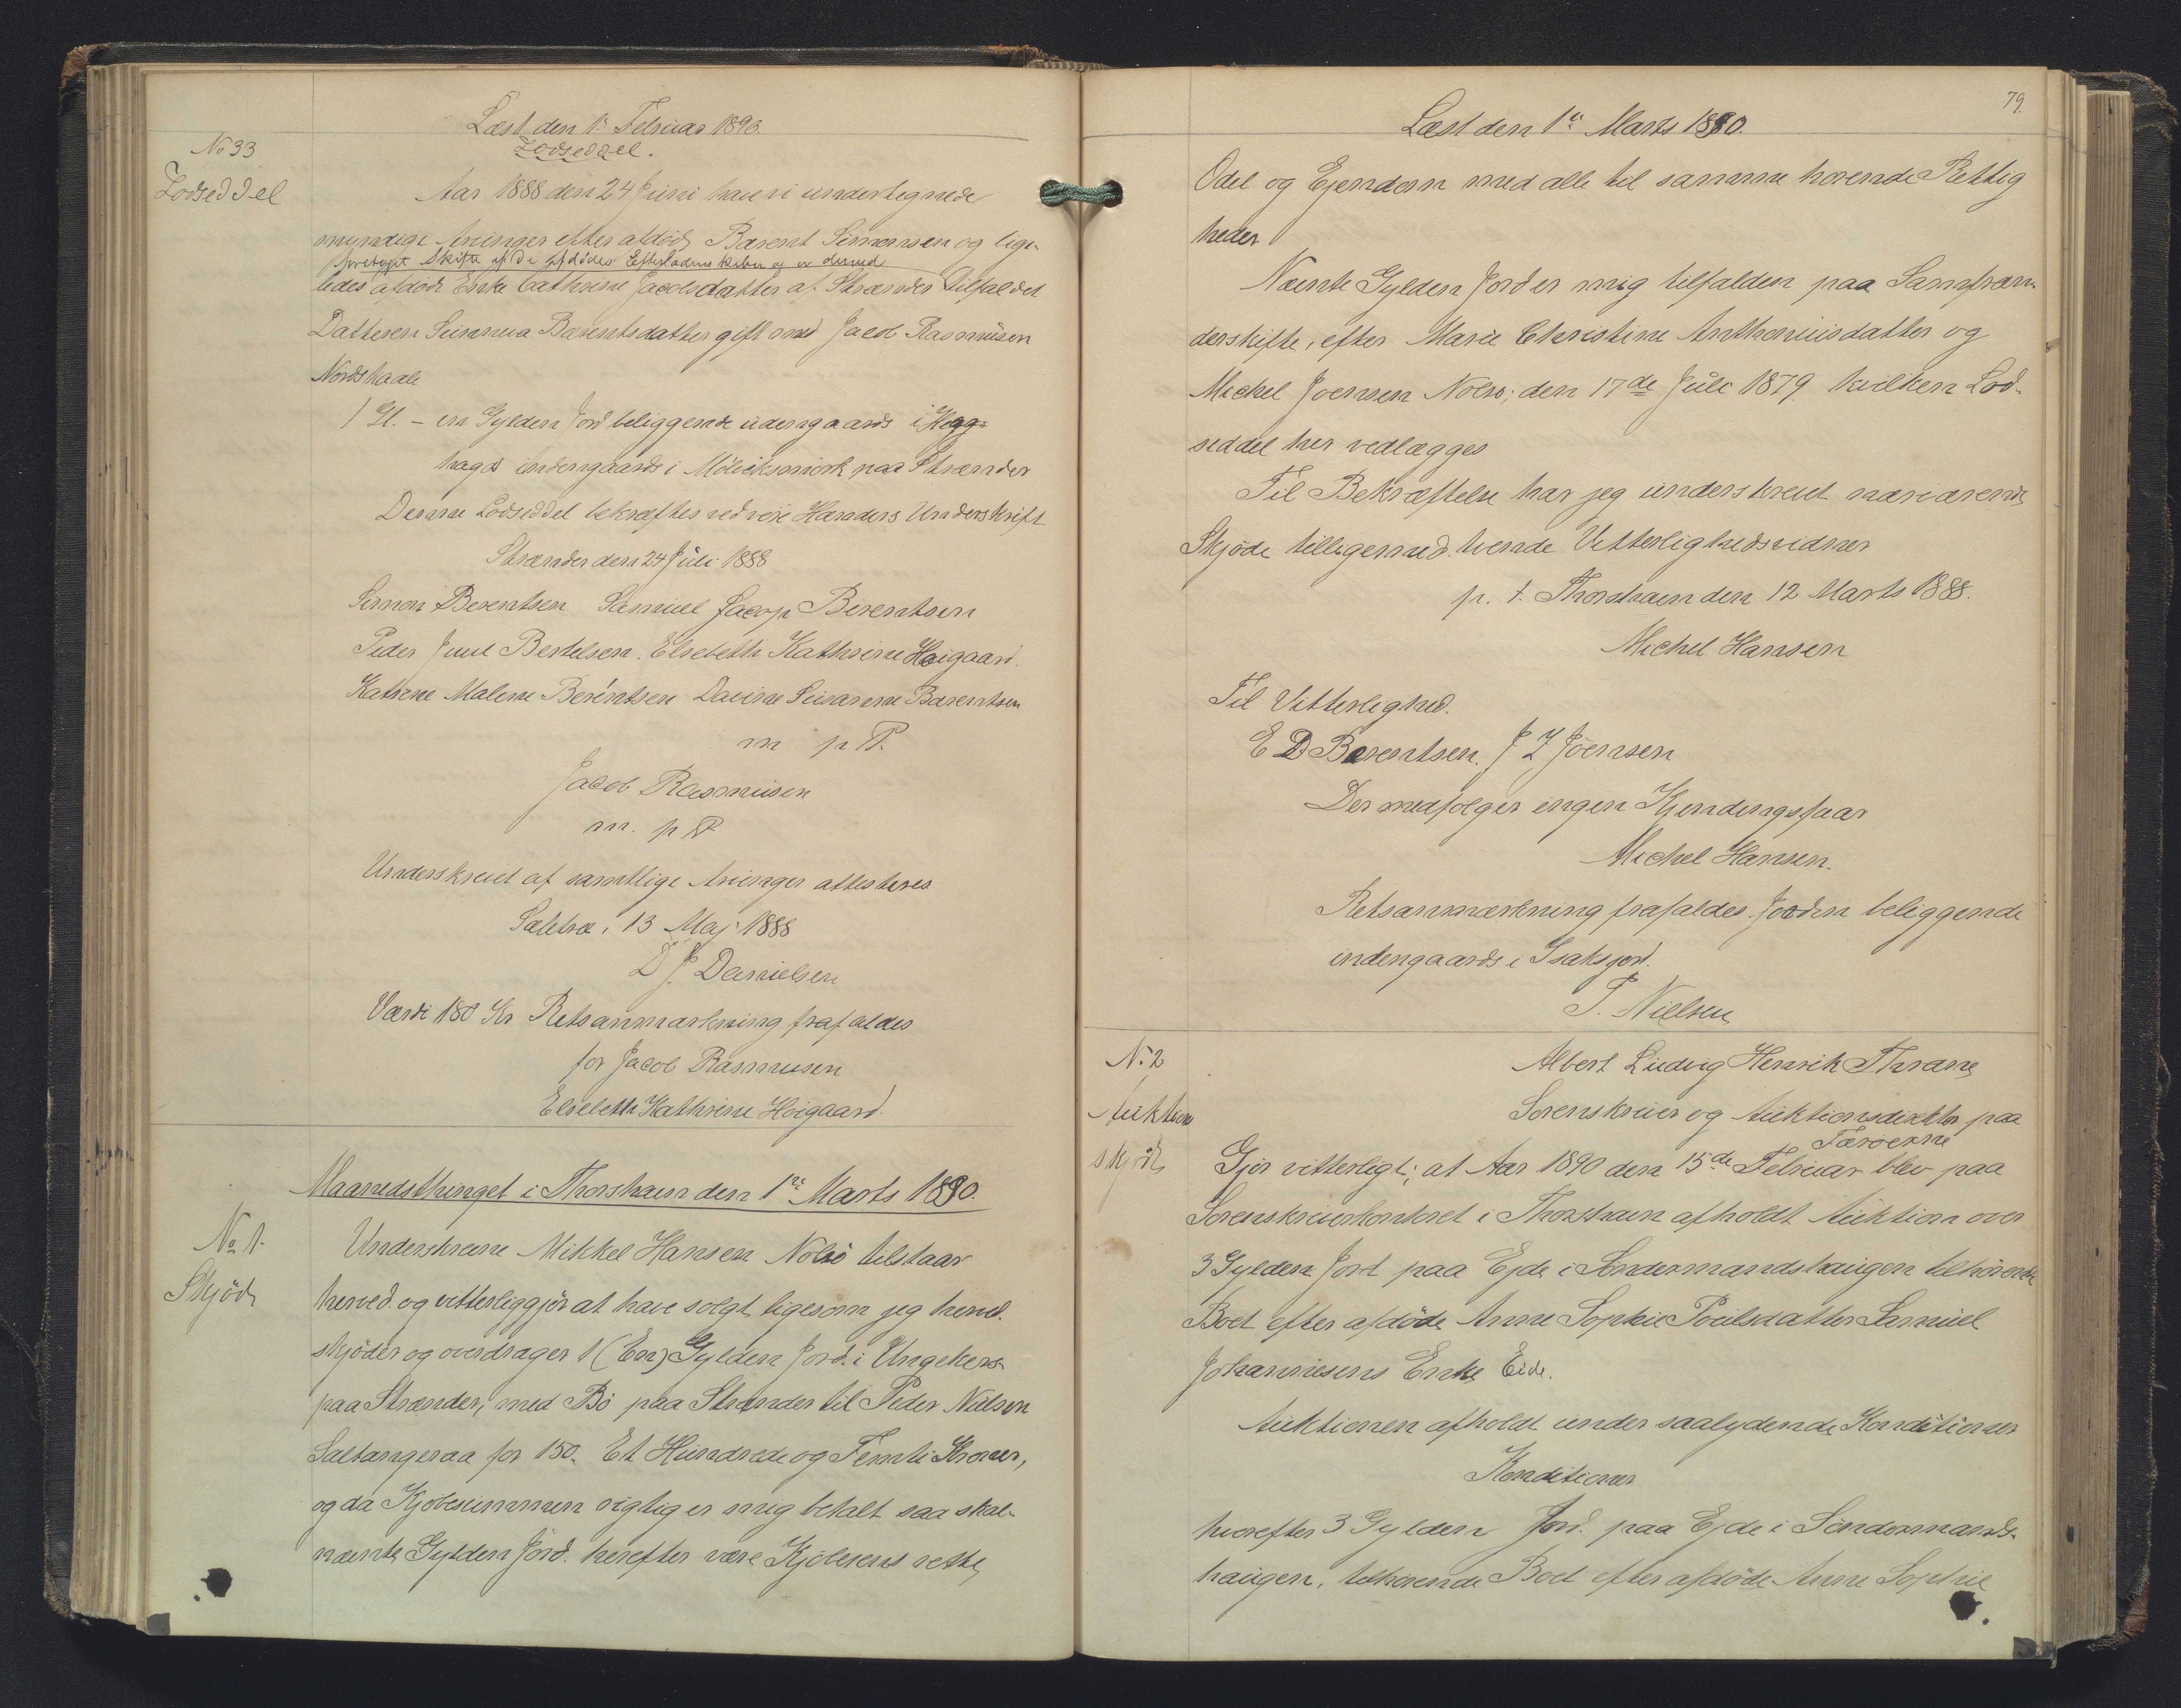 Læst den 1. Februar 1890.
No 33
Lodseddel.
Lodseddel
Aar 1888 den 24 Juni have vi undertegnede
myndige Arvinger efter afdøde Barent Simonsen og lige-
foretaget Skifte af De afdødes Efterladenskaber og er derved
ledes afdøde Enke Cathrine Jacobsdatter af Strænder tilfaldet
Datteren Sunneva Barentsdatter gift med Jacob Rasmüsen
Nordskaale
1 Gl. - en Gylden Jord beliggende udengaards i Høgg-
haga indengaards i Mølviksmörk paa Strænder
Denne Lodseddel bekræftes med vore Hænders Underskrift
Strænder den 24 Juli 1888
Simon Berentsen Samuel Jacop Berentsen
Peder Juul Bertelsen. Elsebeth Kathrine Høigaard.
Katrine Malene Berentsen Davine Susanne Barentsen
m p P.
Jacob Rasmüsen
m. p P
Underskrevet af samtlige Arvinger attesteres
Saltnæ, 13 Maj 1888
D J. Danielsen
Værdi 180 Kr Retsanmærkning frafaldes
for Jacob Rasmusen
Elsebeth Kathrine Høigaard.
Maanedsthinget i Thorshavn den 1ste Marts 1890.
No 1.
Skjöde
Underskrevne Mikkel Hansen Nolsö tilstaar
herved og vitterliggjör at have solgt ligesom jeg herved.
skjöder og overdrager 1 (En) Gylden Jord i Ungekers-
paa Strænder, med Bö paa Strænder til Peder Nielsen
Saltangeraa for 150. Et Hundrede og Femti Kroner,
og da Kjöbesummen rigtig er mig betalt saa skal-
nævnte Gylden Jord. herefter være Kjöberens rette
79.
Læst den 1ste Marts 1890.
Odel og Ejendom med alle til samme hørende Rettig
heder
Nævnte Gylden Jord er mig tilfalden paa Samfræn-
derskifte, efter Marie Christine Anthoniusdatter og
Michel Joensen Nolsø; den 17de Juli 1879. hvilken Lod-
seddel her vedlægges
Til Bekræftelse har jeg underskrevet nærværende
Skjöde tilligemed. tvende Vitterlighedsvidner
p. t. Thorshavn den 12 Marts 1888.
Michel Hansen
Til Vitterlighed.
E D Barentsen. J Z Jöensen
Der medfølger ingen Kjendingsfaar
Michel Hansen.
Retsanmærkning frafaldes Jorden beliggende
indengaards i Isaksjord.
P. Nielsen
No 2
Auktions
skjöde
Albert Ludvig Henrik Thrane
Sorenskriver og Auktionsdirektör paa
Færøerne
Gjör vitterligt; at Aar 1890 den 15de Februar blev paa
Sorenskriverkontoret i Thorshavn afholdt Auktion over
3 Gylden Jord paa Ejde i Söndermandshaugen tilhörende
Boet efter afdöde Anne Sophie Poulsdatter Samuel
Johannesens Enke Eide.
Auktionen afholdt under saalydende Konditioner
Konditioner
hvorefter 3 Gylden Jord. paa Ejde i Söndermands-
haugen, tilhørende Boet efter afdöde Anne Sophie